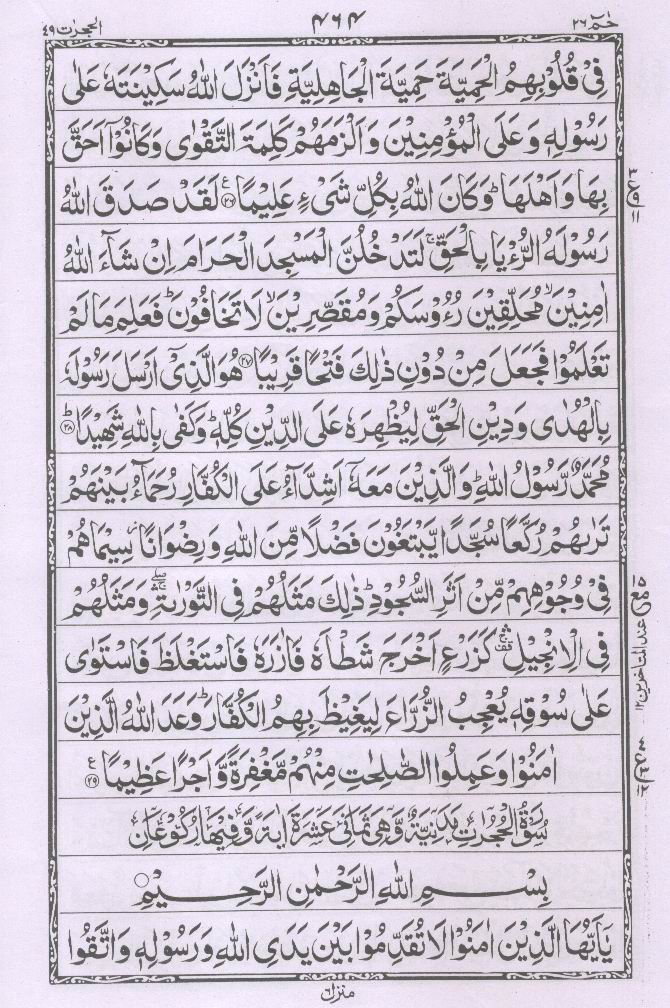 حٰمٓ ٢٦
٤٦٤
الحجرٰت ٤٩
فِیْ قُلُوْبِهِمُ الْحَمِیَّةَ حَمِیَّةَ الْجَاهِلِیَّةِ فَاَنْزَلَ اللّٰهُ سَكِیْنَتَهٗ عَلٰی
رَسُوْلِهٖ وَ عَلَی الْمُؤْمِنِیْنَ وَ اَلْزَمَهُمْ كَلِمَةَ التَّقْوٰی وَ كَانُوْۤا اَحَقَّ
بِهَا وَ اَهْلَهَا ؕ وَ كَانَ اللّٰهُ بِكُلِّ شَیْءٍ عَلِیْمًا ﴿۲۶﴾ لَقَدْ صَدَقَ اللّٰهُ
رَسُوْلَهُ الرُّءْیَا بِالْحَقِّ ۚ لَتَدْخُلُنَّ الْمَسْجِدَ الْحَرَامَ اِنْ شَآءَ اللّٰهُ
اٰمِنِیْنَ ۙ مُحَلِّقِیْنَ رُءُوْسَكُمْ وَ مُقَصِّرِیْنَ ۙ لَا تَخَافُوْنَ ؕ فَعَلِمَ مَا لَمْ
تَعْلَمُوْا فَجَعَلَ مِنْ دُوْنِ ذٰلِكَ فَتْحًا قَرِیْبًا ﴿۲۷﴾ هُوَ الَّذِیْۤ اَرْسَلَ رَسُوْلَهٗ
بِالْهُدٰی وَ دِیْنِ الْحَقِّ لِیُظْهِرَهٗ عَلَی الدِّیْنِ كُلِّهٖ ؕ وَ كَفٰی بِاللّٰهِ شَهِیْدًا ﴿۲۸﴾ؕ
مُحَمَّدٌ رَّسُوْلُ اللّٰهِ ؕ وَ الَّذِیْنَ مَعَهٗۤ اَشِدَّآءُ عَلَی الْكُفَّارِ رُحَمَآءُ بَیْنَهُمْ
تَرٰىهُمْ رُكَّعًا سُجَّدًا یَّبْتَغُوْنَ فَضْلًا مِّنَ اللّٰهِ وَ رِضْوَانًا ؗ سِیْمَاهُمْ
فِیْ وُجُوْهِهِمْ مِّنْ اَثَرِ السُّجُوْدِ ؕ ذٰلِكَ مَثَلُهُمْ فِی التَّوْرٰىةِ ۛۖۚ وَ مَثَلُهُمْ
فِی الْاِنْجِیْلِ ۛ۫ۚ كَزَرْعٍ اَخْرَجَ شَطْاَهٗ فَاٰزَرَهٗ فَاسْتَغْلَظَ فَاسْتَوٰی
عَلٰی سُوْقِهٖ یُعْجِبُ الزُّرَّاعَ لِیَغِیْظَ بِهِمُ الْكُفَّارَ ؕ وَعَدَ اللّٰهُ الَّذِیْنَ
اٰمَنُوْا وَ عَمِلُوا الصّٰلِحٰتِ مِنْهُمْ مَّغْفِرَةً وَّ اَجْرًا عَظِیْمًا ﴿۲۹﴾
سُوْرَةُ الْحُجُرٰتِ مَدَنِیَّةٌ وَّهِیَ ثَمَانِیَ عَشَرَةَ اٰیَةً وَّفِیْهَا رُكُوْعَانِ
بِسْمِ اللّٰهِ الرَّحْمٰنِ الرَّحِیْمِ
یٰۤاَیُّهَا الَّذِیْنَ اٰمَنُوْا لَا تُقَدِّمُوْا بَیْنَ یَدَیِ اللّٰهِ وَ رَسُوْلِهٖ وَ اتَّقُوا
منزل ٦
ع ٣ ١١
معـ ١٥ عند المتاخرین ١٢
ع ٤ ٣ ١٢